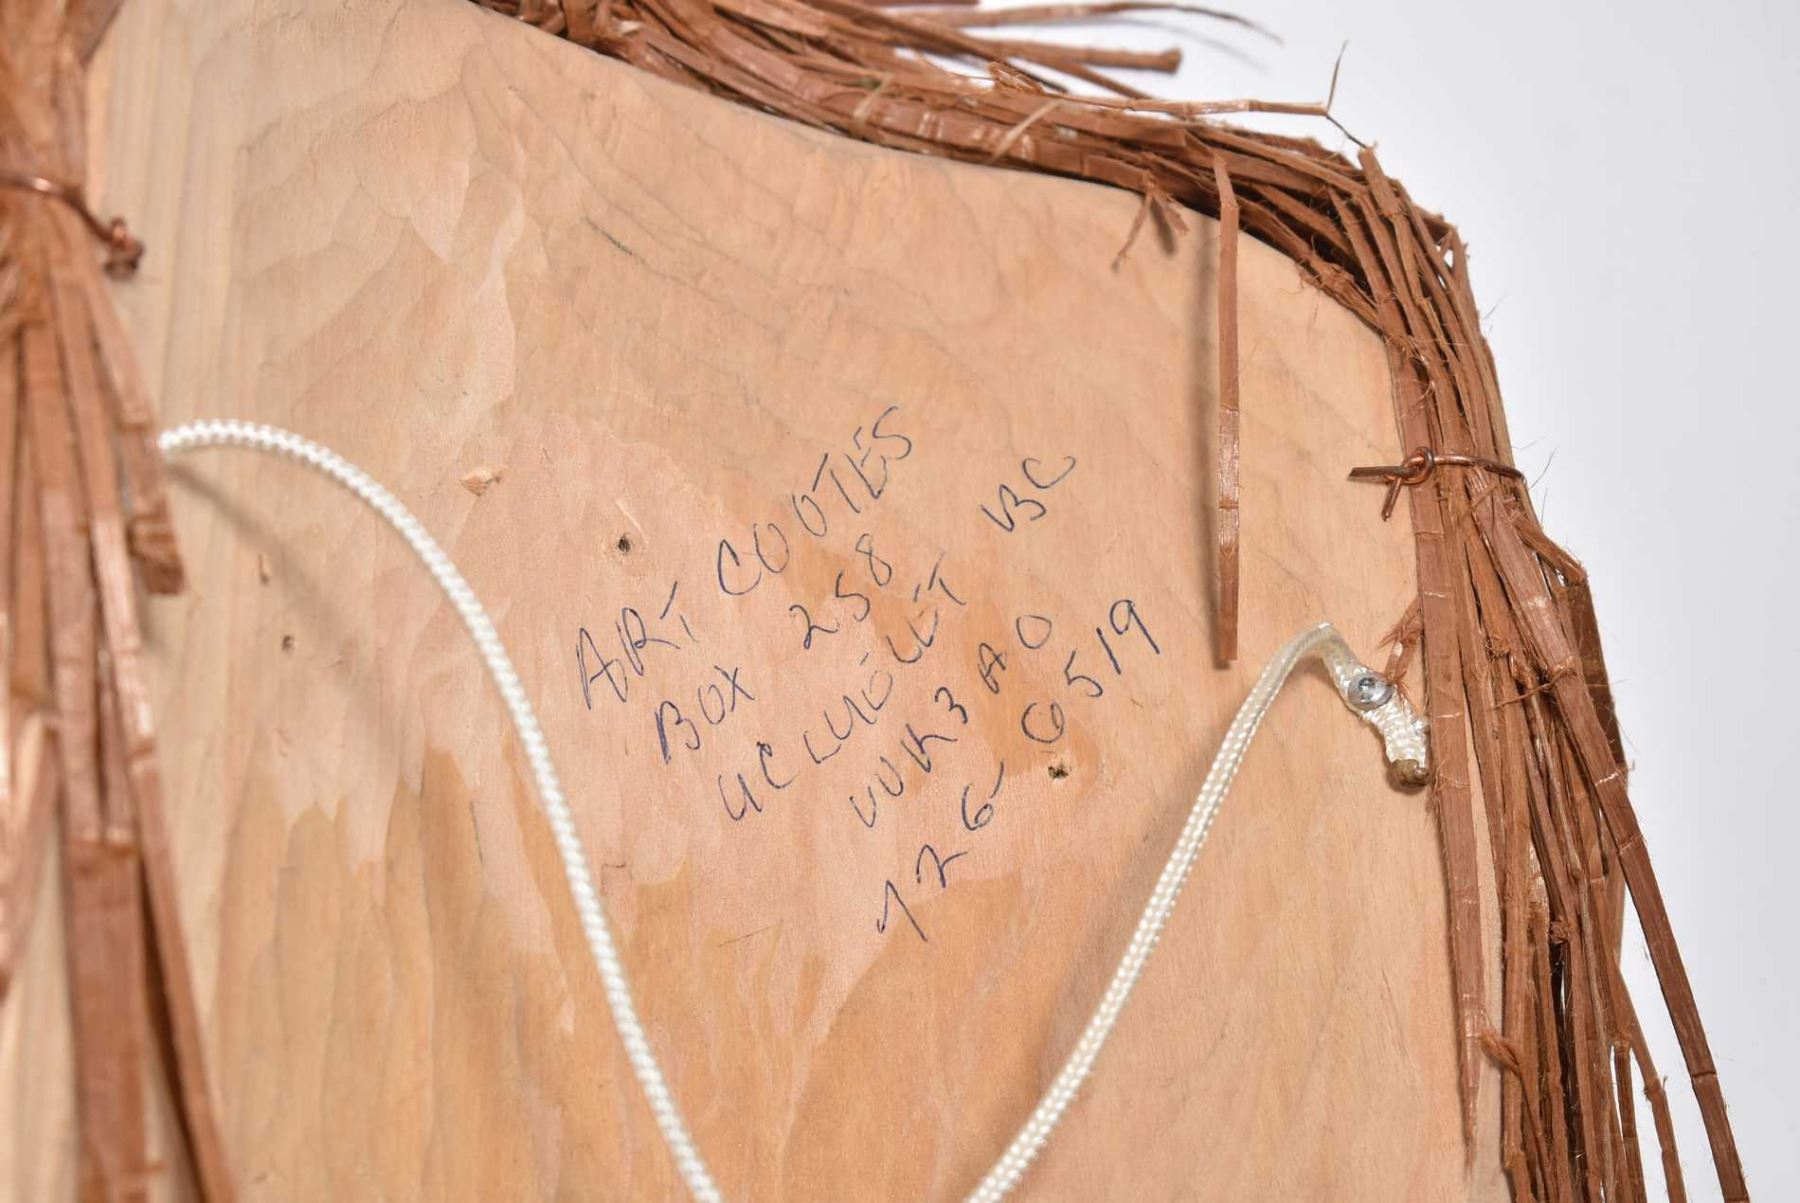 ART COOTES
BOX 258
UCLUOLET BC
VUR3A0
726-6519